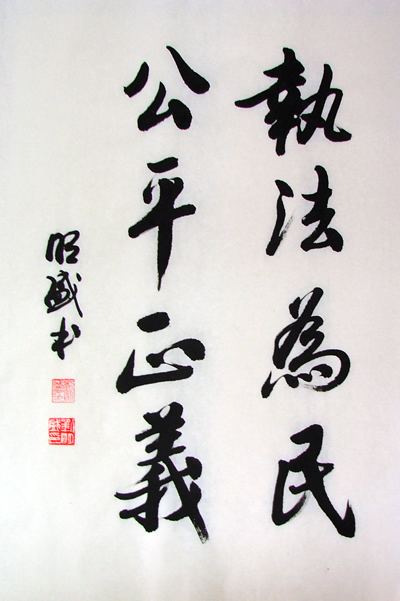 執法為民
公平正義
昭盛书